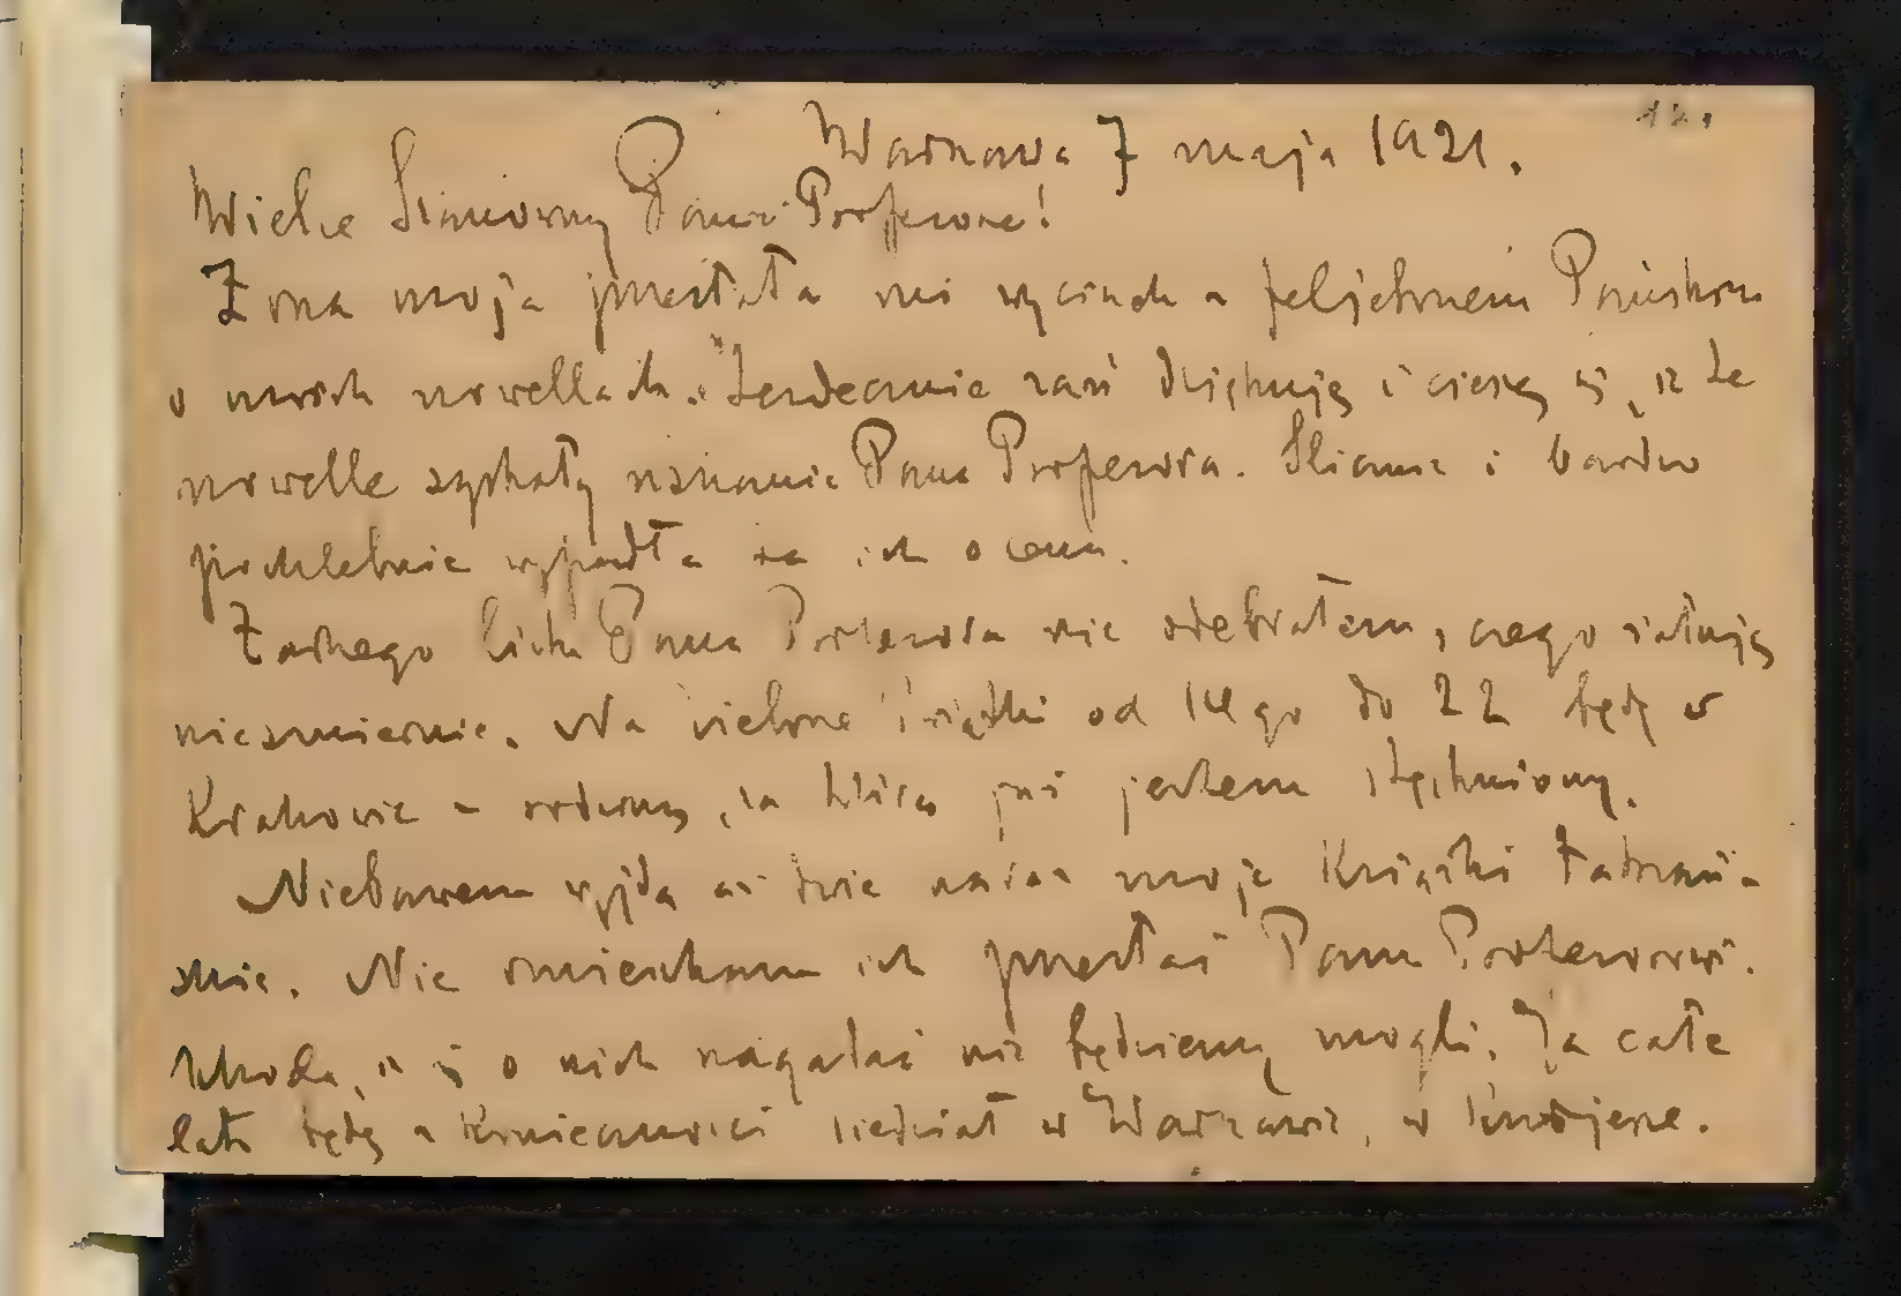 12.
Warszawa 7 maja 1921.
Wielce Szanowny Panie Profesorze!
Żona moja przesłała mi wycinek z feljetonem Pańskim
o moich nowellach. Serdecznie zań dziękuję i cieszę się, iż te
nowelle zyskały uznanie Pana Profesora. Ślicznie i bardzo
pochlebnie wypadła ta ich ocena.
Żadnego listu Pana Profesora nie odebrałem, czego żałuję
niezmiernie. Na zielone świątki od 14go do 22 będę w
Krakowie z rodziną, za którą już jestem stęskniony.
Niebawem wyjdą aż dwie naraz moje książki
Nie omieszkam ich przesłać Panu Profesorowi.
Szkoda, iż się o nich nagadać nie będziemy mogli. Ja całe
lato będę z konieczności siedział w Warszawie, w